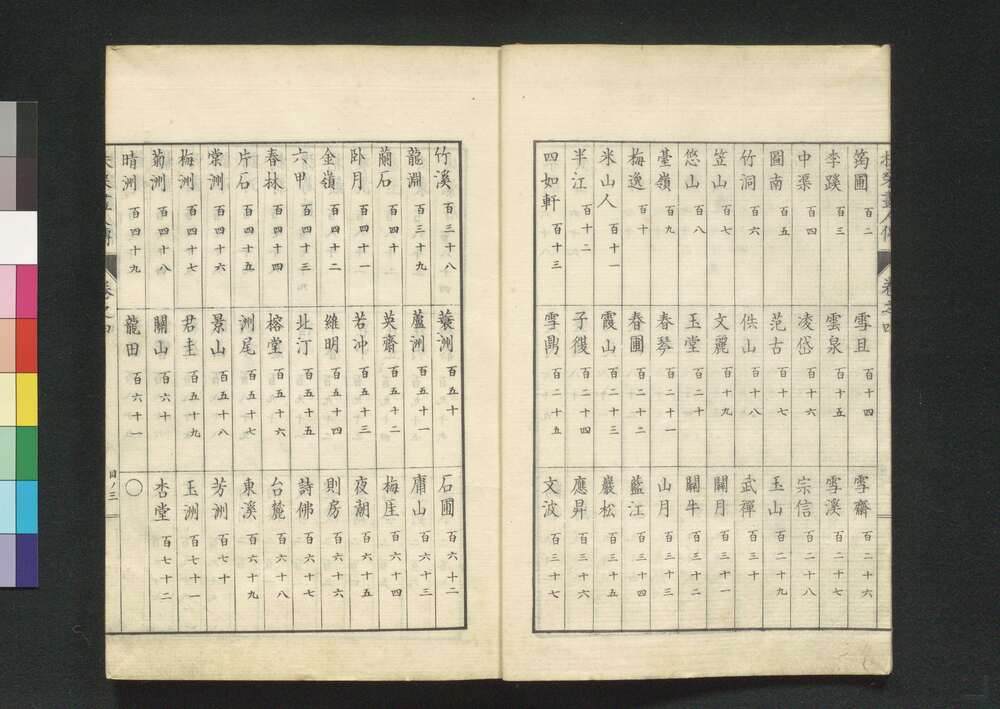 筠圃 百二
李蹊 百三
中渠 百四
圖南 百五
竹洞 百六
笠山 百七
悠山 百八
臺嶺 百九
梅逸 百十
米山人 百十一
半江 百十二
四如軒 百十三
卷之四
雪且 百十四
雲泉 百十五
凌岱 百十六
范古 百十七
供山 百十八
文麗 百十九
玉堂 百二十
春琴 百二十一
春圃 百二十二
霞山 百二十三
子復 百二十四
雪鼎 百二十五
雪齋 百二十六
雪溪 百二十七
宗信 百二十八
玉山 百二十九
武禪 百三十
關月 百三十一
關牛 百三十二
山月 百三十三
藍江 百三十四
巖松 百三十五
應昇 百三十六
文波 百三十七
竹溪 百三十八
龍淵 百三十九
蘭石 百四十
卧月 百四十一
金嶺 百四十二
六甲 百四十三
春林 百四十四
片石 百四十五
棠洲 百四十六
梅洲 百四十七
菊洲 百四十八
晴洲 百四十九
蓑洲 百五十
蘆洲 百五十一
英齋 百五十二
若冲 百五十三
維明 百五十四
北汀 百五十五
榕堂 百五十六
洲尾 百五十七
景山 百五十八
君圭 百五十九
關山 百六十
龍田 百六十一
石圃 百六十二
庸山 百六十三
梅厓 百六十四
夜朝 百六十五
則房 百六十六
詩佛 百六十七
台麓 百六十八
東溪 百六十九
芳洲 百七十
玉洲 百七十一
杏堂 百七十二
○
卷之四
目ノ三